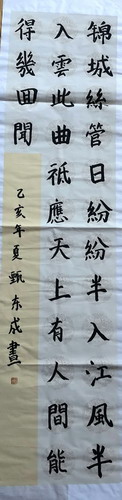 錦城絲管日紛紛半入江風半
入雲此曲祗應天上有人間能
得幾回聞
乙亥年夏甄东成畫